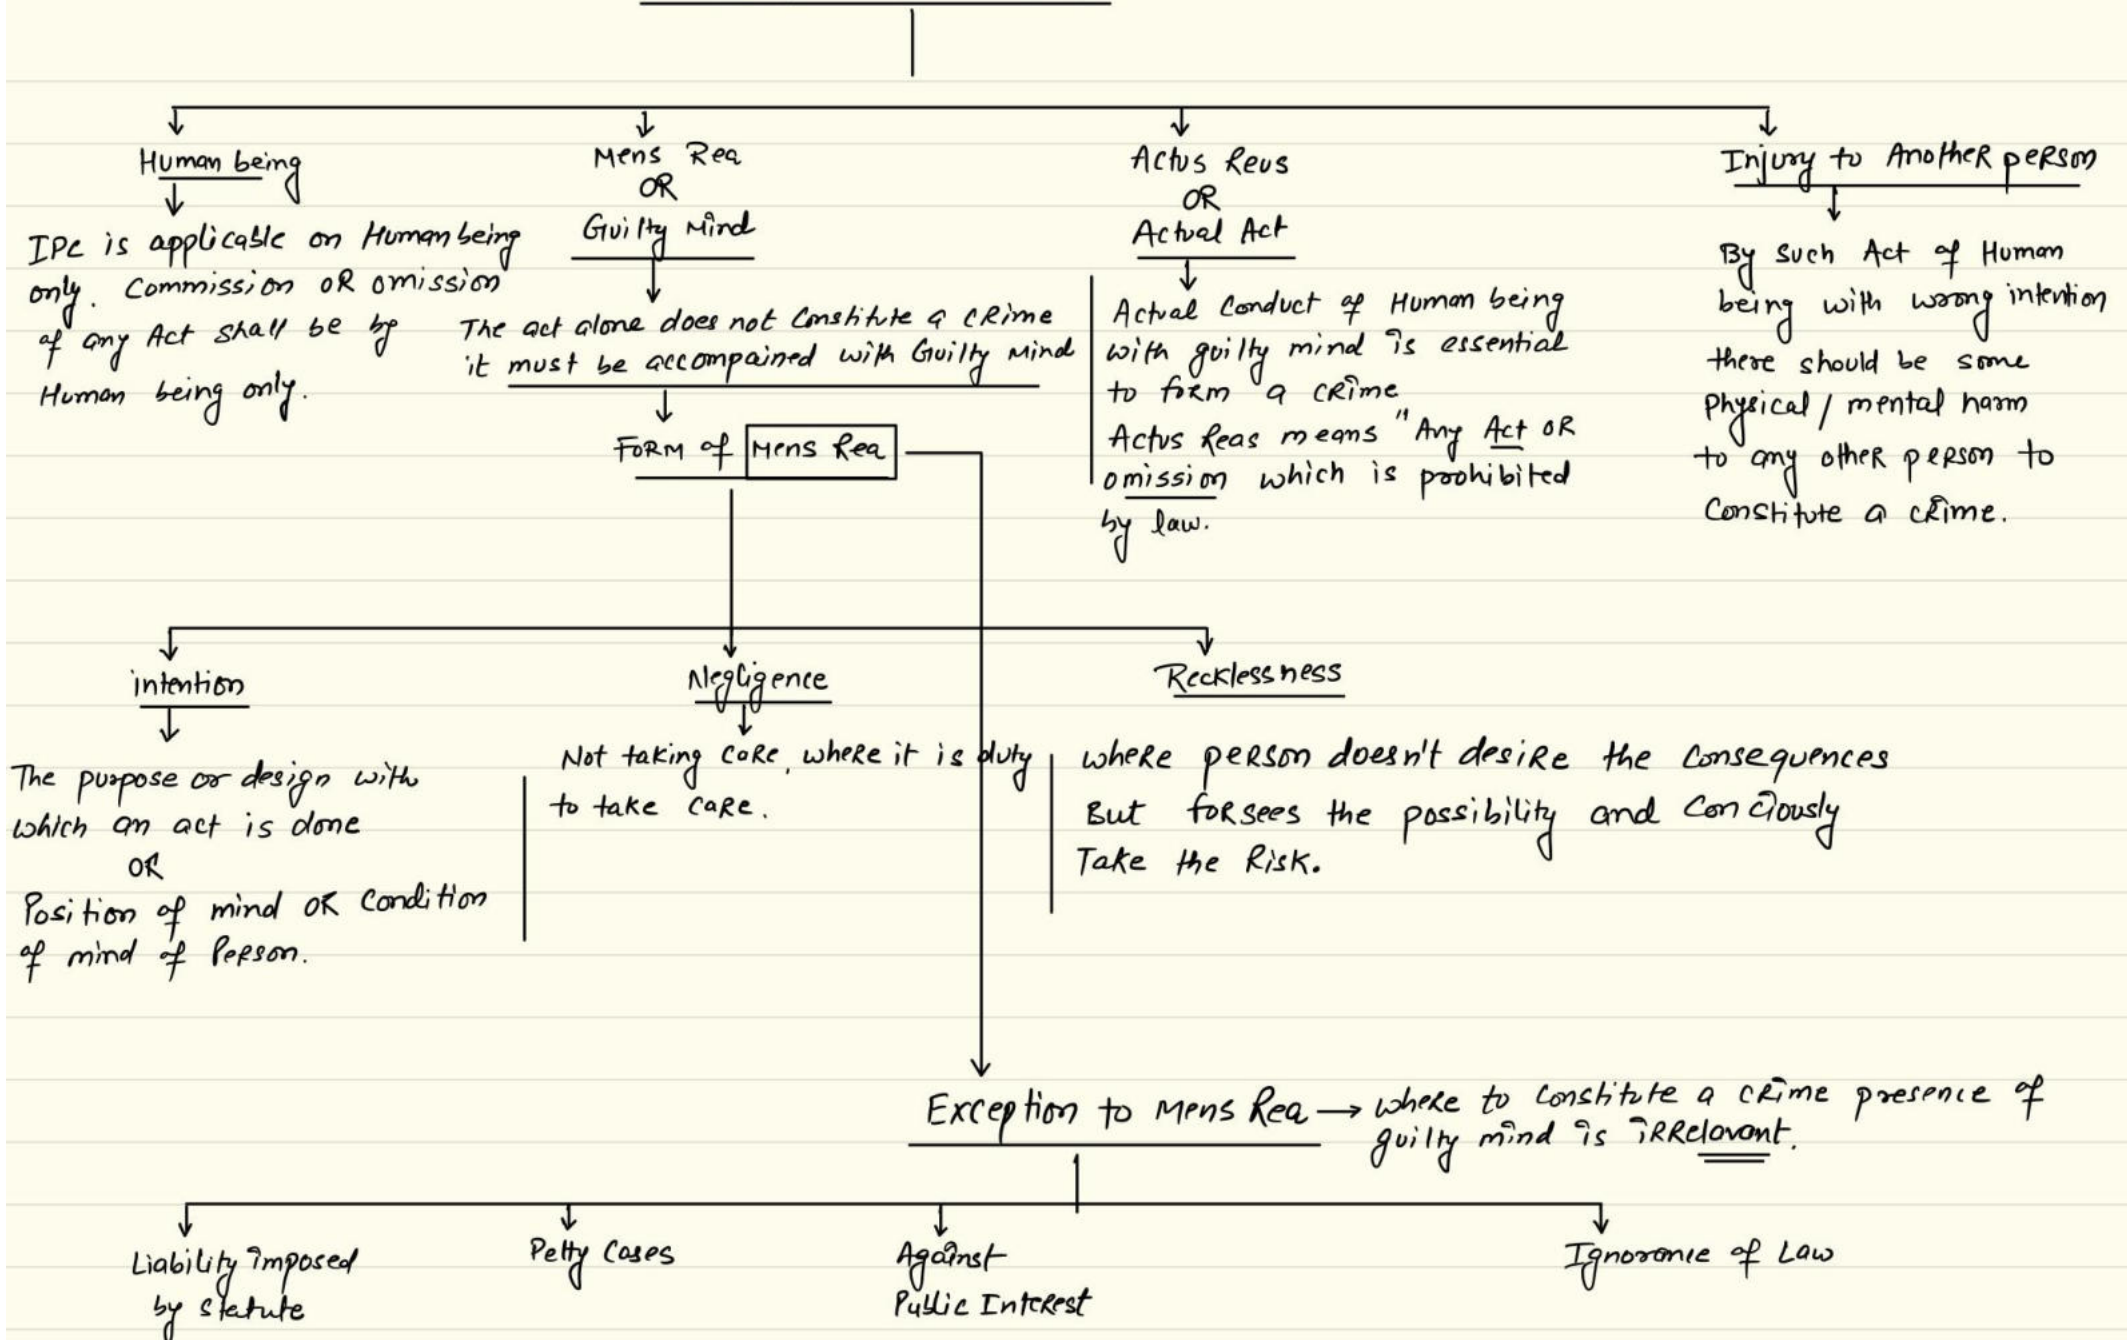 Human being
IPC is applicable on Human being
only. Commission OR omission
of any Act shall be by
Human being only.
Mens Rea
OR
Guilty Mind
The act alone does not Constitute a CRime
it must be accompained with Guilty Mind
FORM of Mens Rea
Actus Reus
OR
Actual Act
Actual Conduct of Human being
with guilty mind is essential
to form a CRime
Actus Reas means "Any Act OR
omission which is prohibited
by law.
Injury to Another person
By such Act of Human
being with wrong intention
there should be some
Physical / mental harm
to any other person to
Constitute a crime.
intention
The purpose or design with
which an act is done
OR
Position of mind OR Condition
of mind of Person.
Negligence
Not taking care, where it is duty
to take care.
Recklessness
where person doesn't desire the Consequences
But forsees the possibility and Conciously
Take the Risk.
Exception to Mens Rea → where to Constitute a crime presence of
guilty mind is iRRelavant.
Liability imposed
by statute
Petty Cases
Against
Public Interest
Ignorance of Law